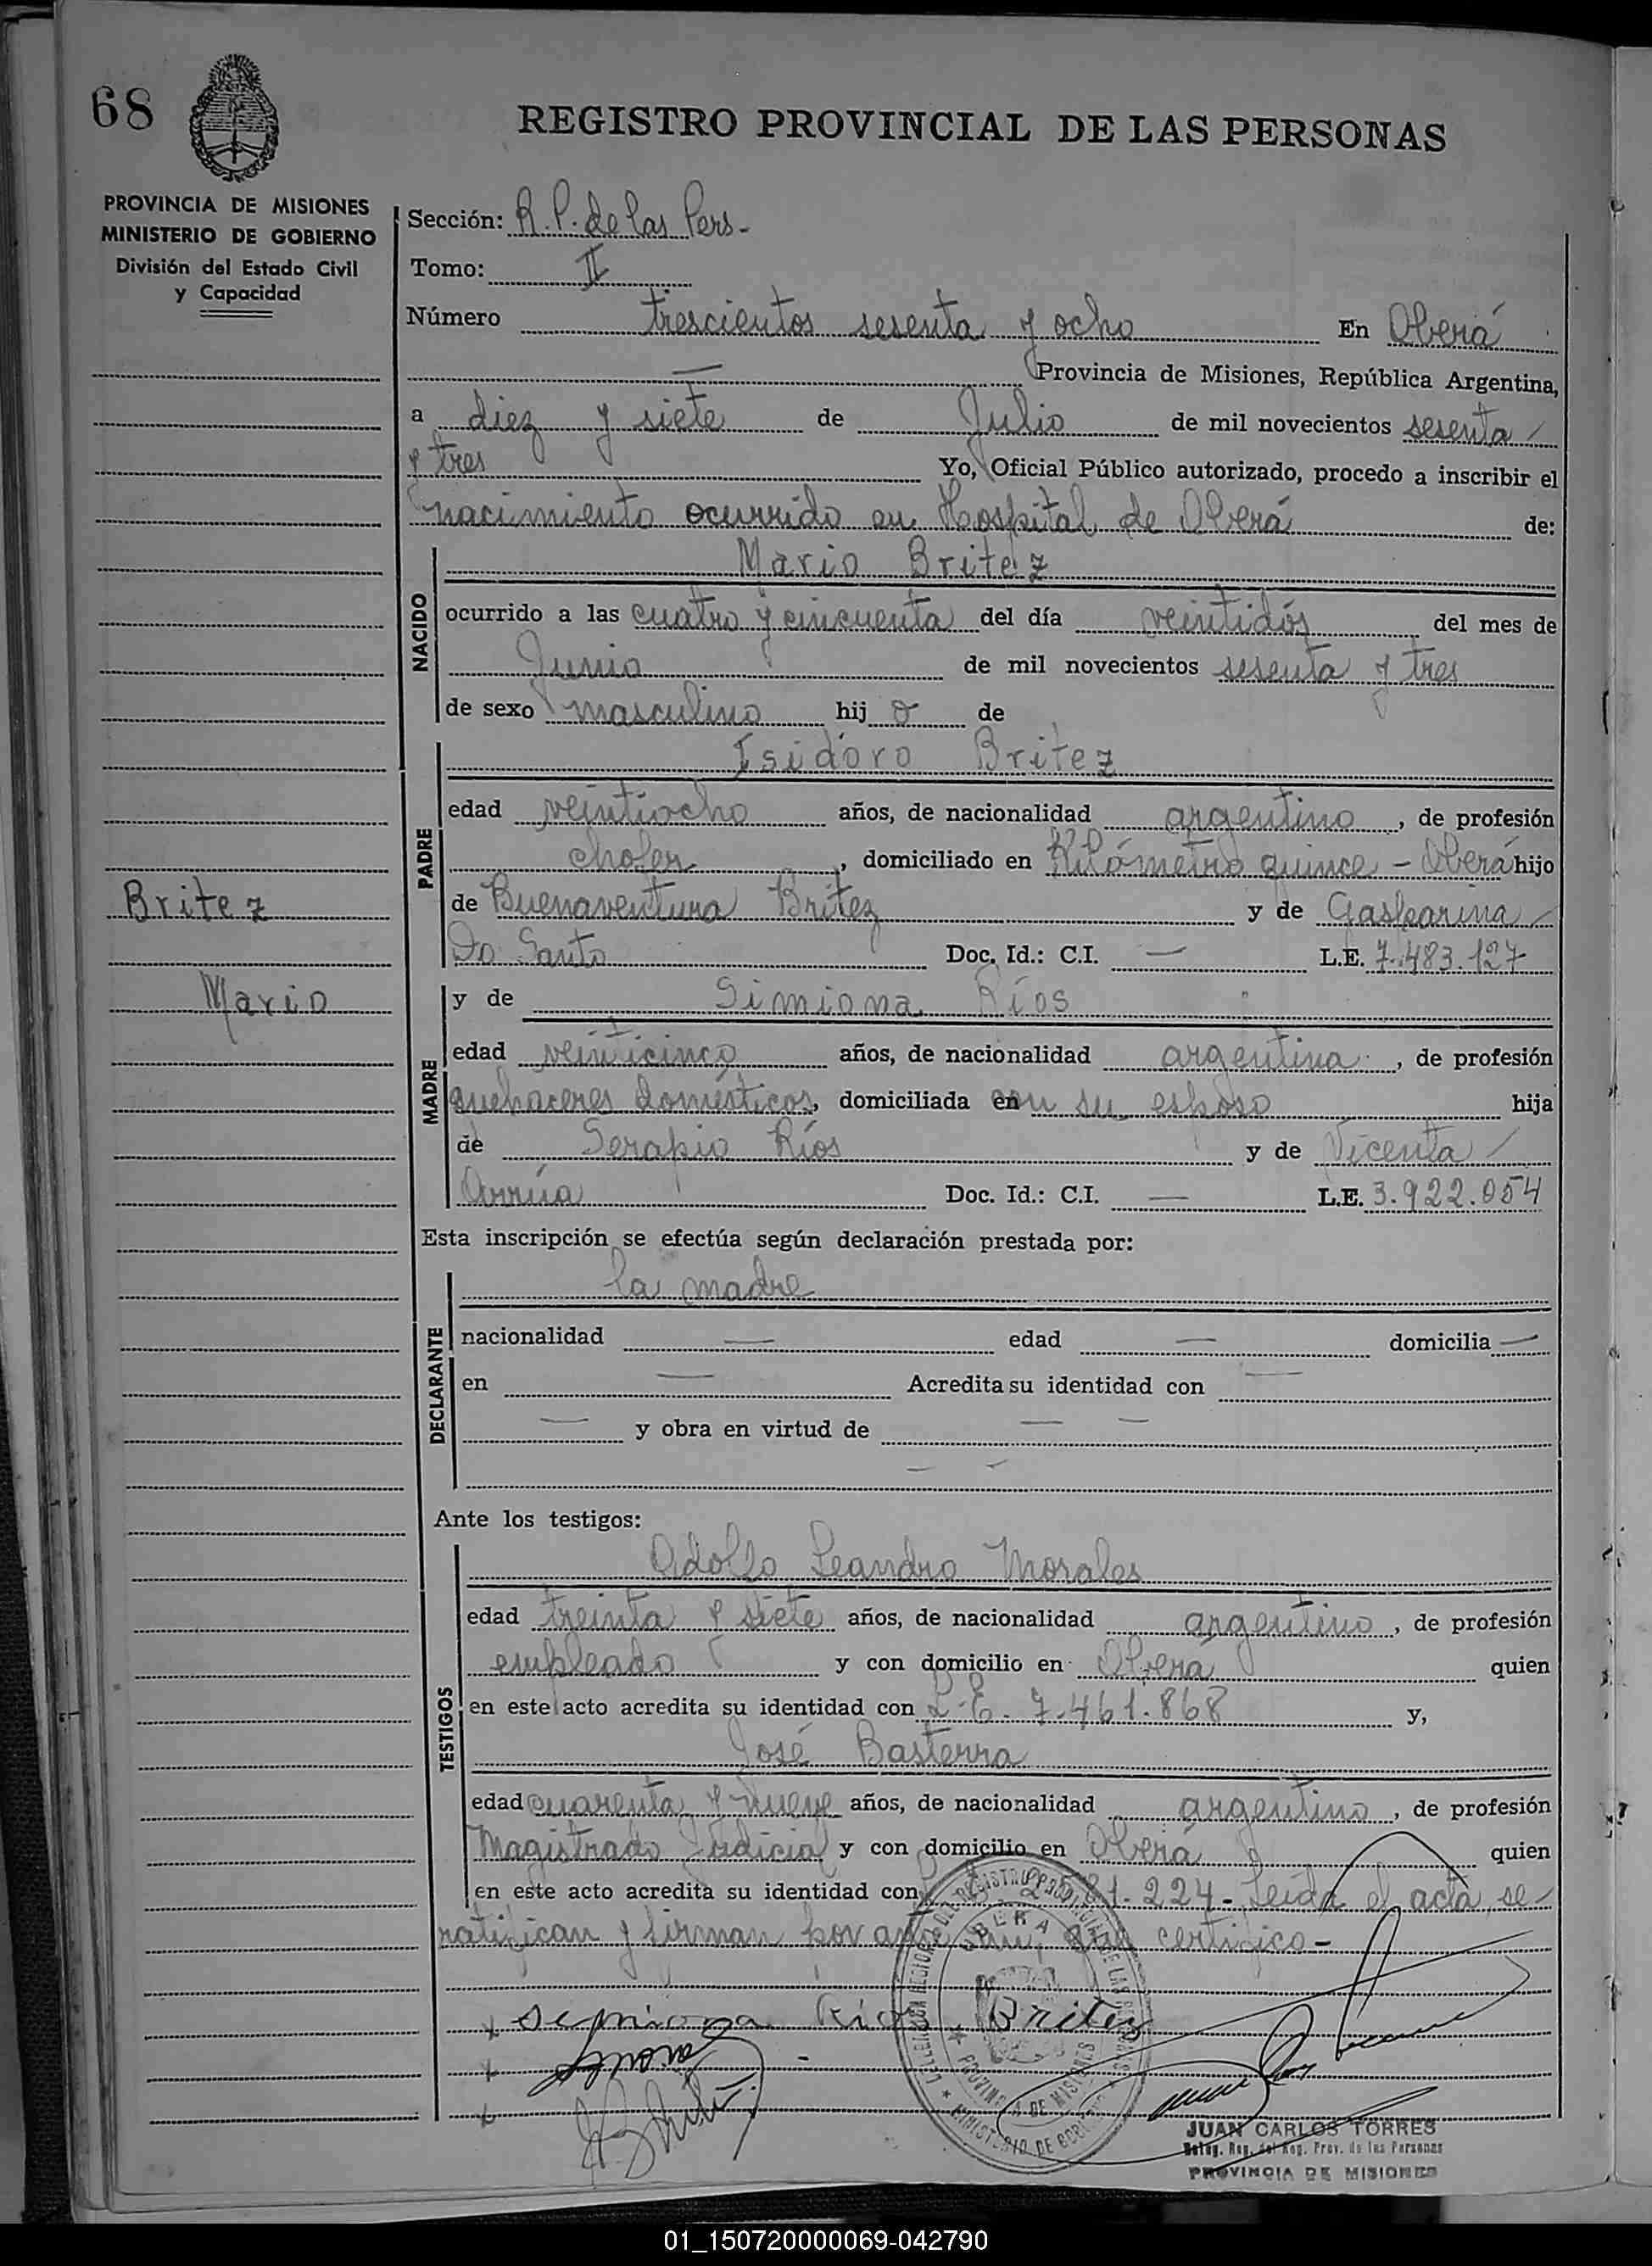 68
REGISTRO PROVINCIAL DE LAS PERSONAS
PROVINCIA DE MISIONES
MINISTERIO DE GOBIERNO
División del Estado Civil
y Capacidad
Sección: R. P. de las Pers-
Tomo: II
Número trescientos sesenta y ocho En Oberá
— Provincia de Misiones, República Argentina,
a diez y siete de Julio de mil novecientos sesenta
y tres Yo, Oficial Público autorizado, procedo a inscribir el
nacimiento ocurrido en Hospital de Oberá de:
NACIDO
Mario Britez
ocurrido a las cuatro y cincuenta del día veintidós del mes de
Junio de mil novecientos sesenta y tres
de sexo masculino hij o de
PADRE
Isidoro Britez
edad veintiocho años, de nacionalidad argentino, de profesión
chofer, domiciliado en Kilómetro quince - Oberá hijo
de Buenaventura Britez y de Gasparina
Do Santo Doc. Id.: C.I. — L.E. 7.483.127
Britez
Mario
MADRE
y de Simiona Ríos
edad veinticinco años, de nacionalidad argentina, de profesión
quehaceres domésticos, domiciliada en su esposo hija
de Serapio Ríos y de Vicenta
Arrúa Doc. Id.: C.I. — L.E. 3.922.054
Esta inscripción se efectúa según declaración prestada por:
DECLARANTE
la madre
nacionalidad — edad — domicilia —
en — Acredita su identidad con —
— y obra en virtud de — —
— —
Ante los testigos:
TESTIGOS
Adolfo Leandro Morales
edad treinta y siete años, de nacionalidad argentino, de profesión
empleado y con domicilio en Oberá quien
en este acto acredita su identidad con L.E. 7.461.868 y,
José Basterra
edad cuarenta y nueve años, de nacionalidad argentino, de profesión
Magistrado Judicial y con domicilio en Oberá quien
en este acto acredita su identidad con 224- Leída el acta, se
ratifican y firman por ante mí, que certifico-
x semiona Rios Britez
x
x
OBERA
PROVINCIA DE MISIONES
MINISTERIO DE GOBIERNO
JUAN CARLOS TORRES
Deleg. Reg. del Reg. Prov. de las Personas
PROVINCIA DE MISIONES
01_150720000069-042790